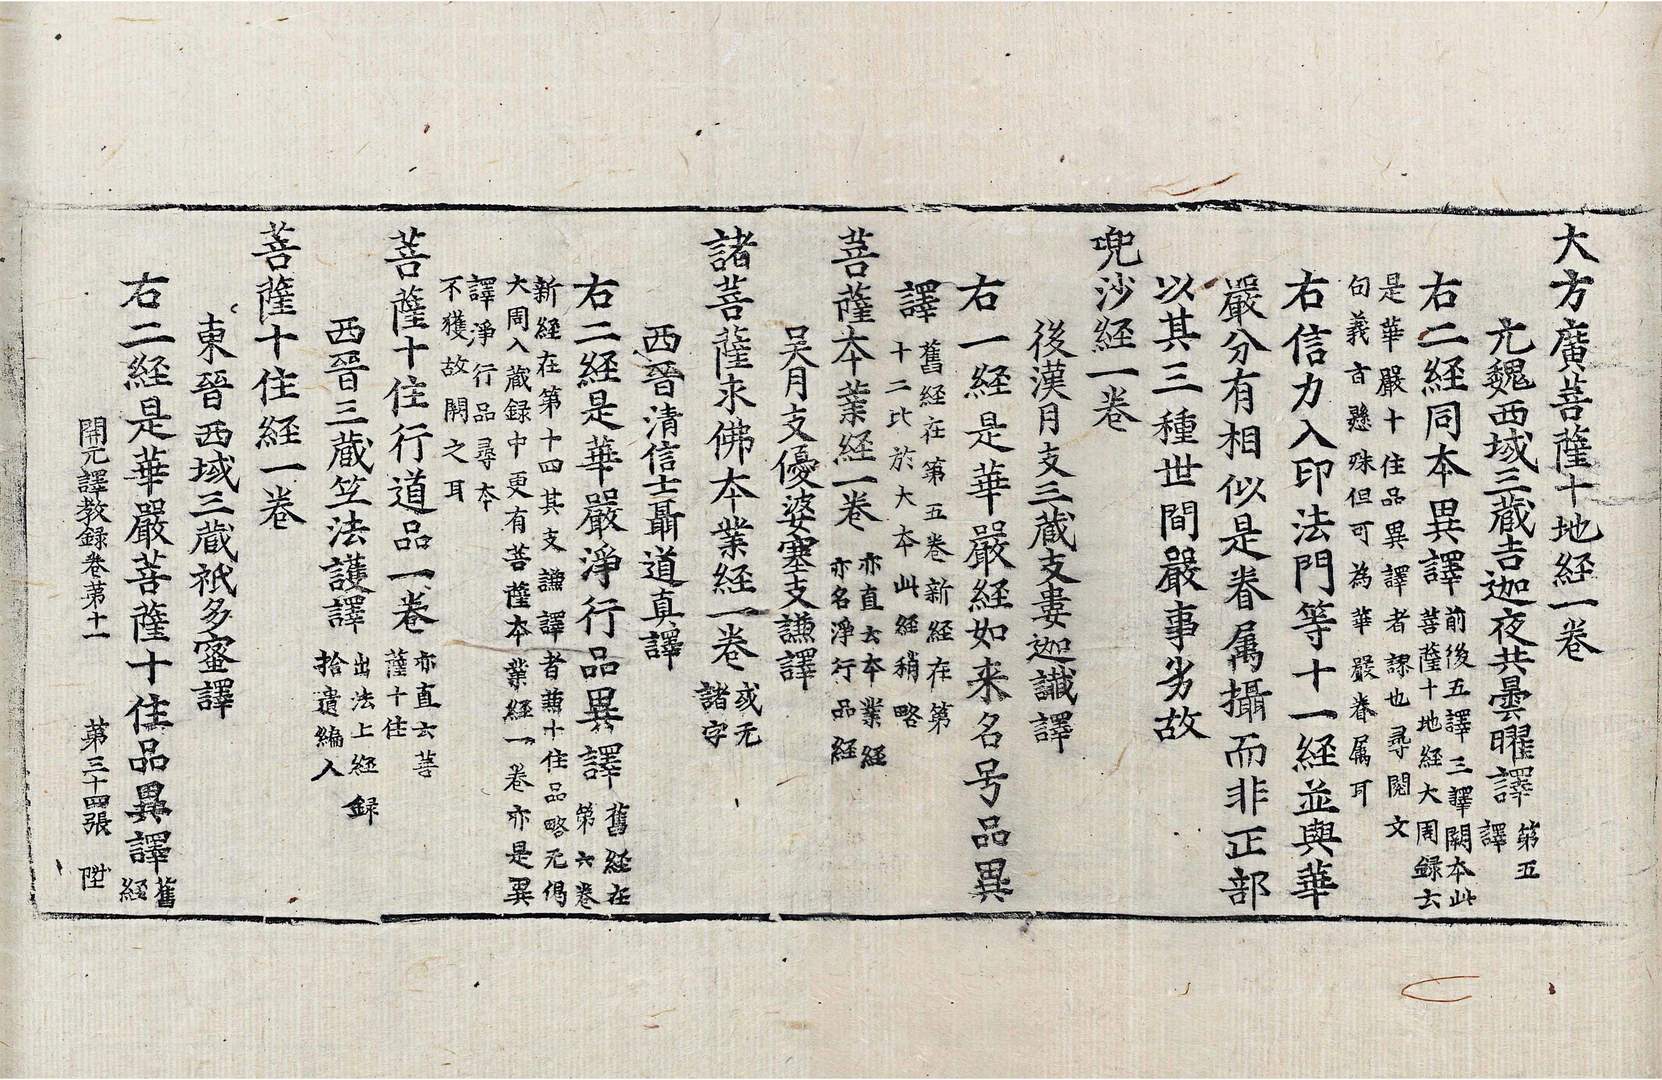 大方廣菩薩十地経一卷
元魏西域三蔵吉迦夜共曇曜譯第五譯
右二経同本異譯前後五譯三譯闕本此菩薩十地経大周録云
是華嚴十住品異譯者謬也尋閲文
句義言懸殊但可為華嚴眷属耳
右信力入印法門等十一経並與華
嚴分有相似是眷属攝而非正部
以其三種世間嚴事劣故
兜沙経一卷
後漢月支三蔵支婁迦讖譯
右一経是華嚴経如来名号品異
譯舊経在第五卷新経在第十二比於大本此経稍略
菩薩本業経一卷亦直云本業経亦名淨行品経
吴月支優婆塞支謙譯
諸菩薩求佛本業経一卷或无諸字
西晉清信士聶道真譯
右二経是華嚴淨行品異譯舊経在第六卷
新経在第十四其支謙譯者兼十住品略无偈
大周入蔵録中更有菩薩本業経一卷亦是異
譯淨行品尋本
不獲故闕之耳
菩薩十住行道品一卷亦直云菩薩十住
西晉三蔵竺法護譯出法上経録拾遺編入
菩薩十住経一卷
東晉西域三蔵祇多蜜譯
右二経是華嚴菩薩十住品異譯舊経
開元譯教録卷第十一 第三十四張 陞